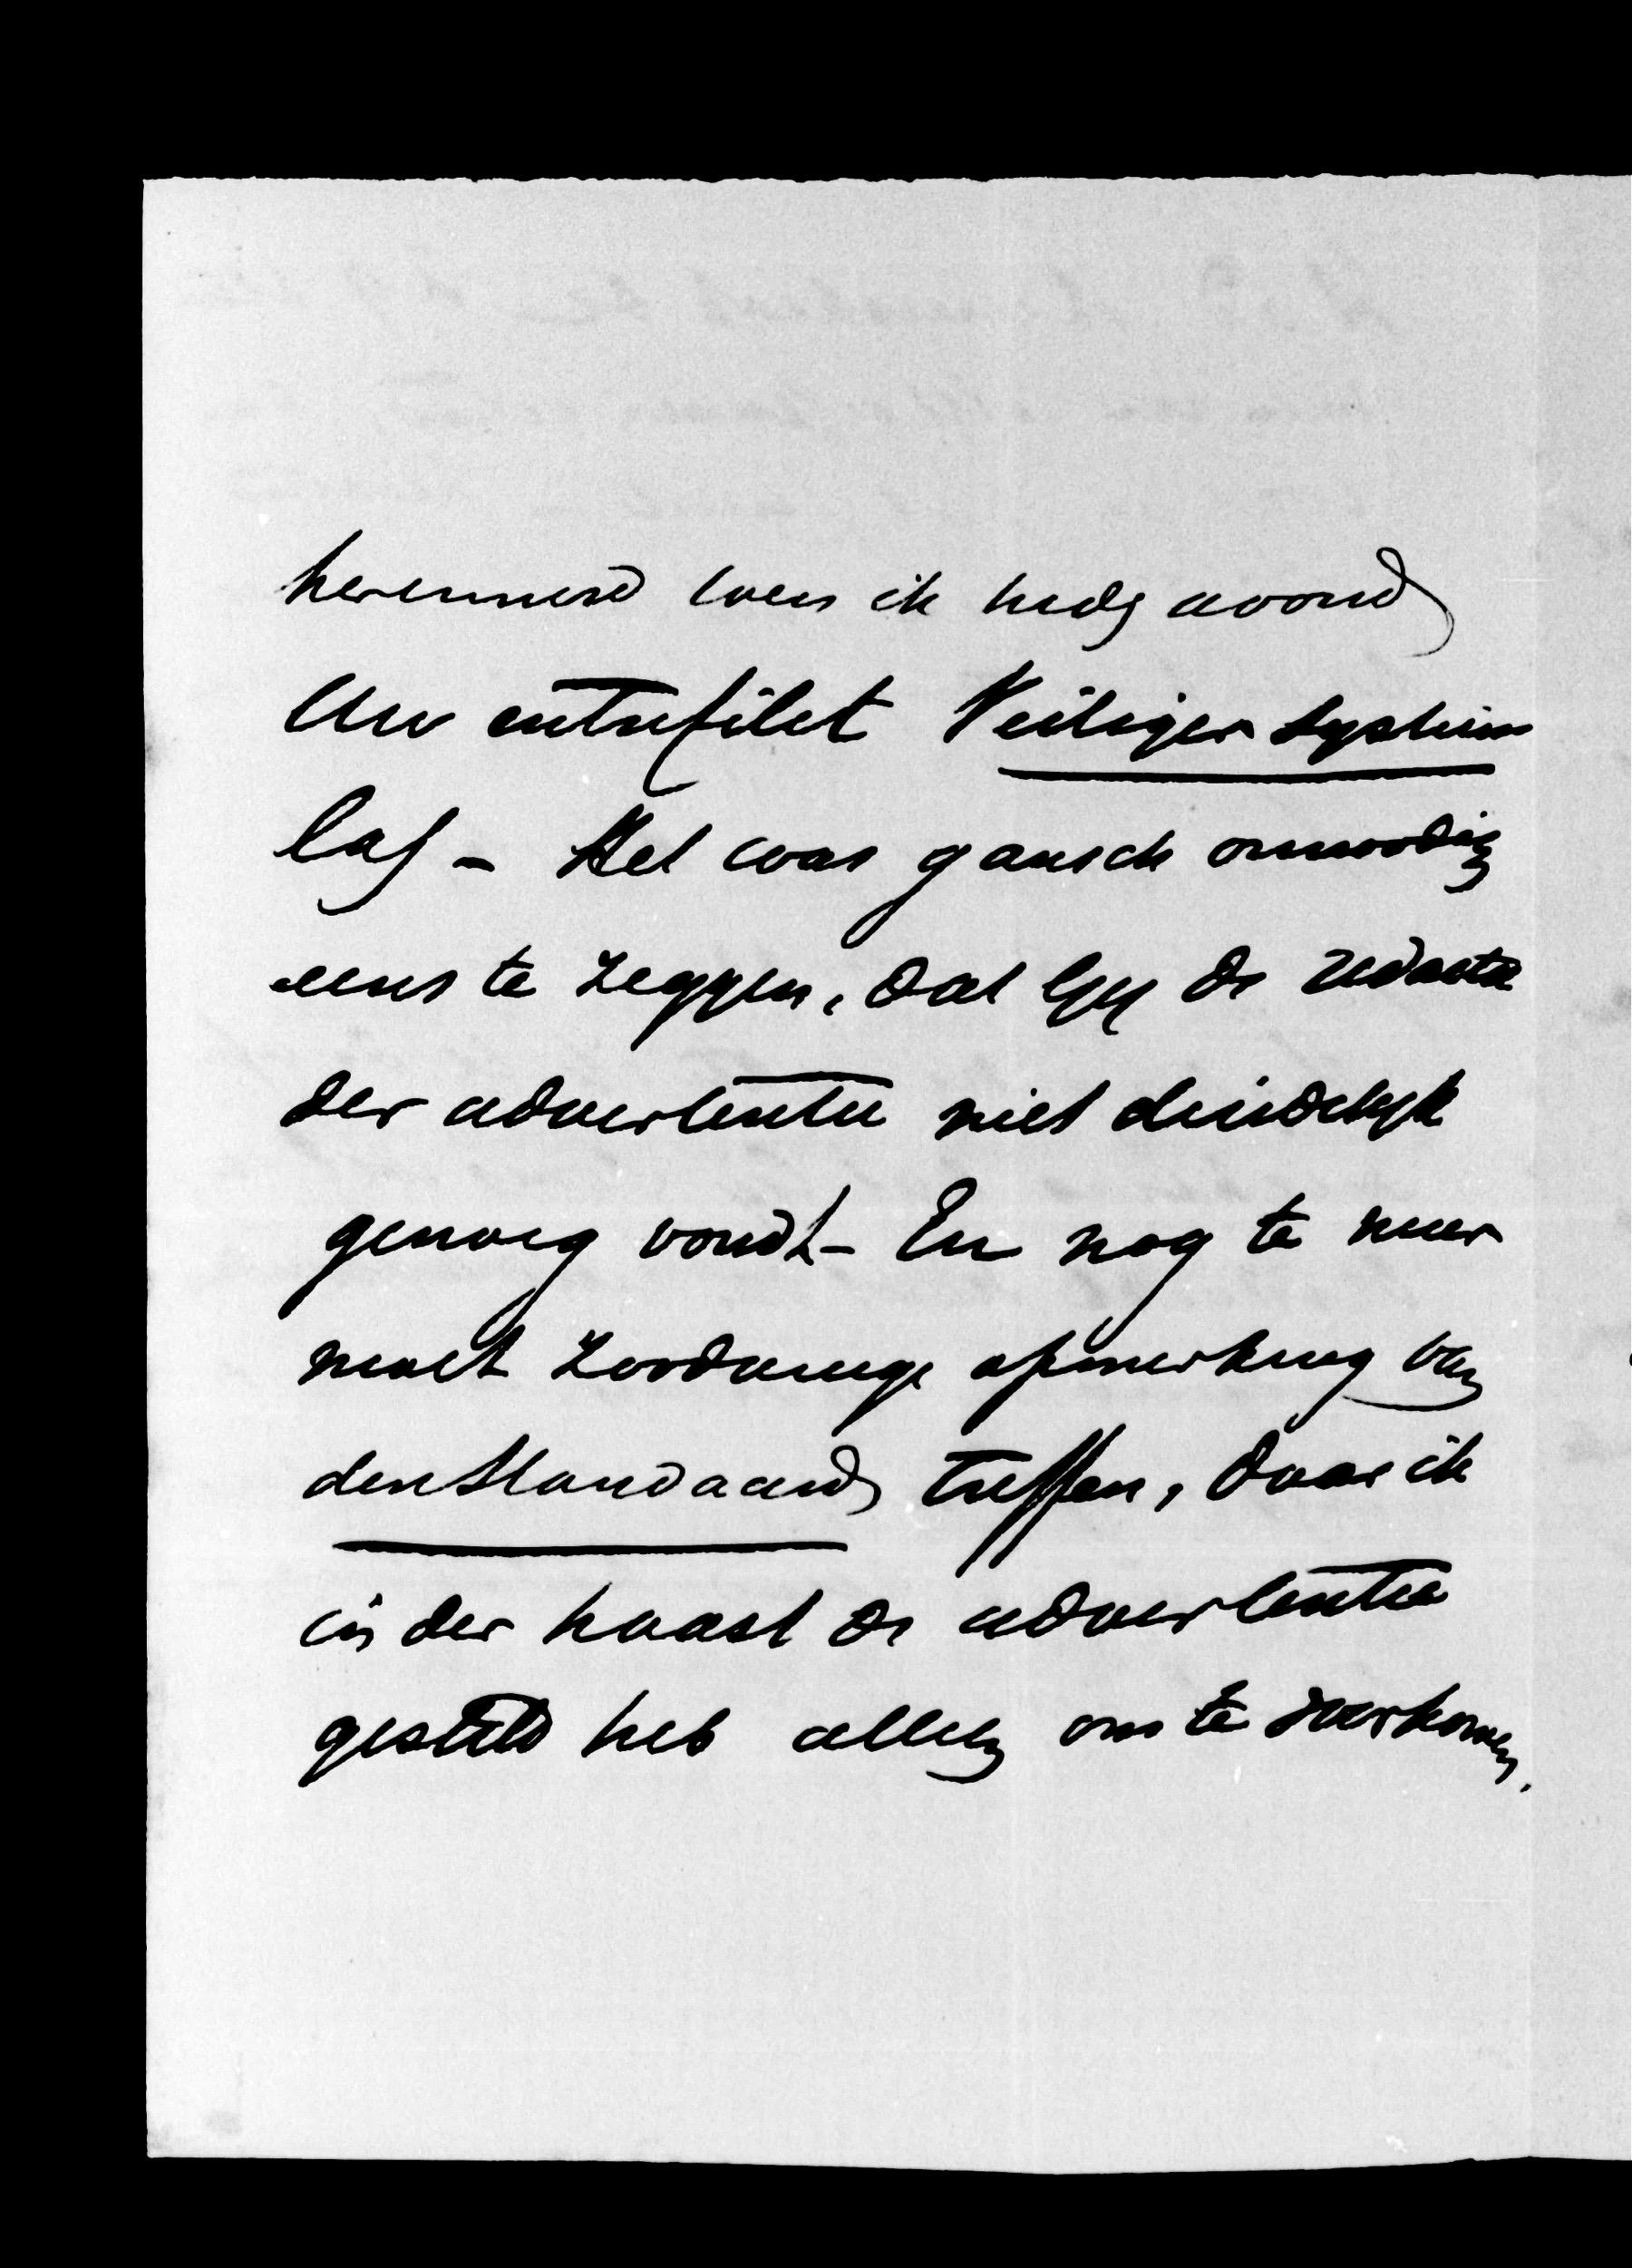 herinnerd toen ik heden avond
Uw entrefilet Veiliger systeem
las - Het was gansch onnoodig
eens te zeggen, dat Gij de redactie
der advertentie niet duidelijk
genoeg vondt - En nog te meer
moet zoodanige opmerking van
den Standaard treffen, daar ik
in der haast de advertentie
gesteld heb alleen om te voorkomen,